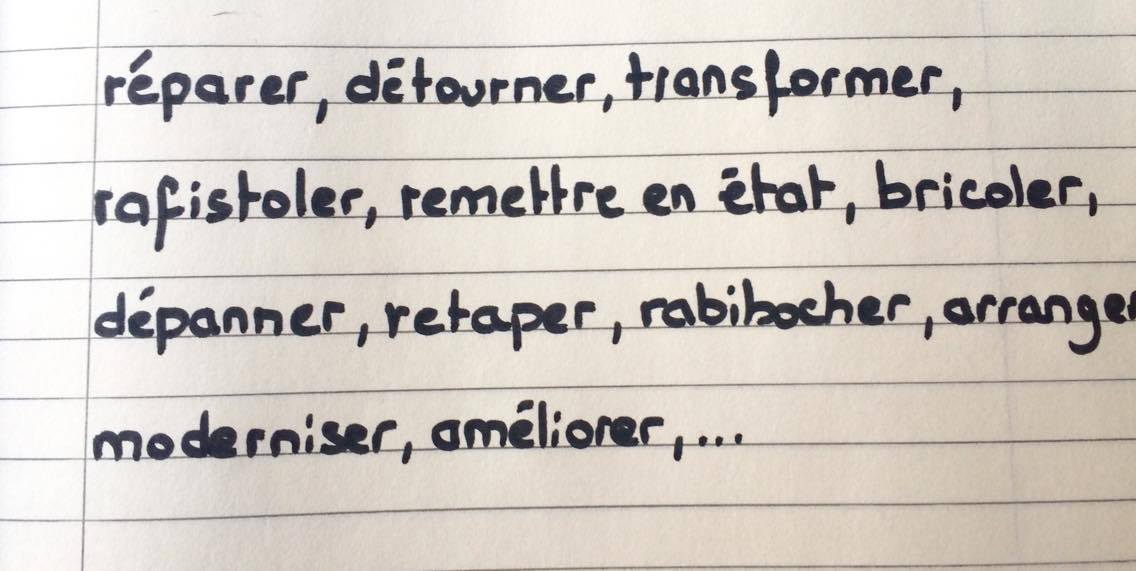 réparer, détourner, transformer,
rafistoler, remettre en état, bricoler,
dépanner, retaper, rabibocher, arranger
moderniser, améliorer, ...